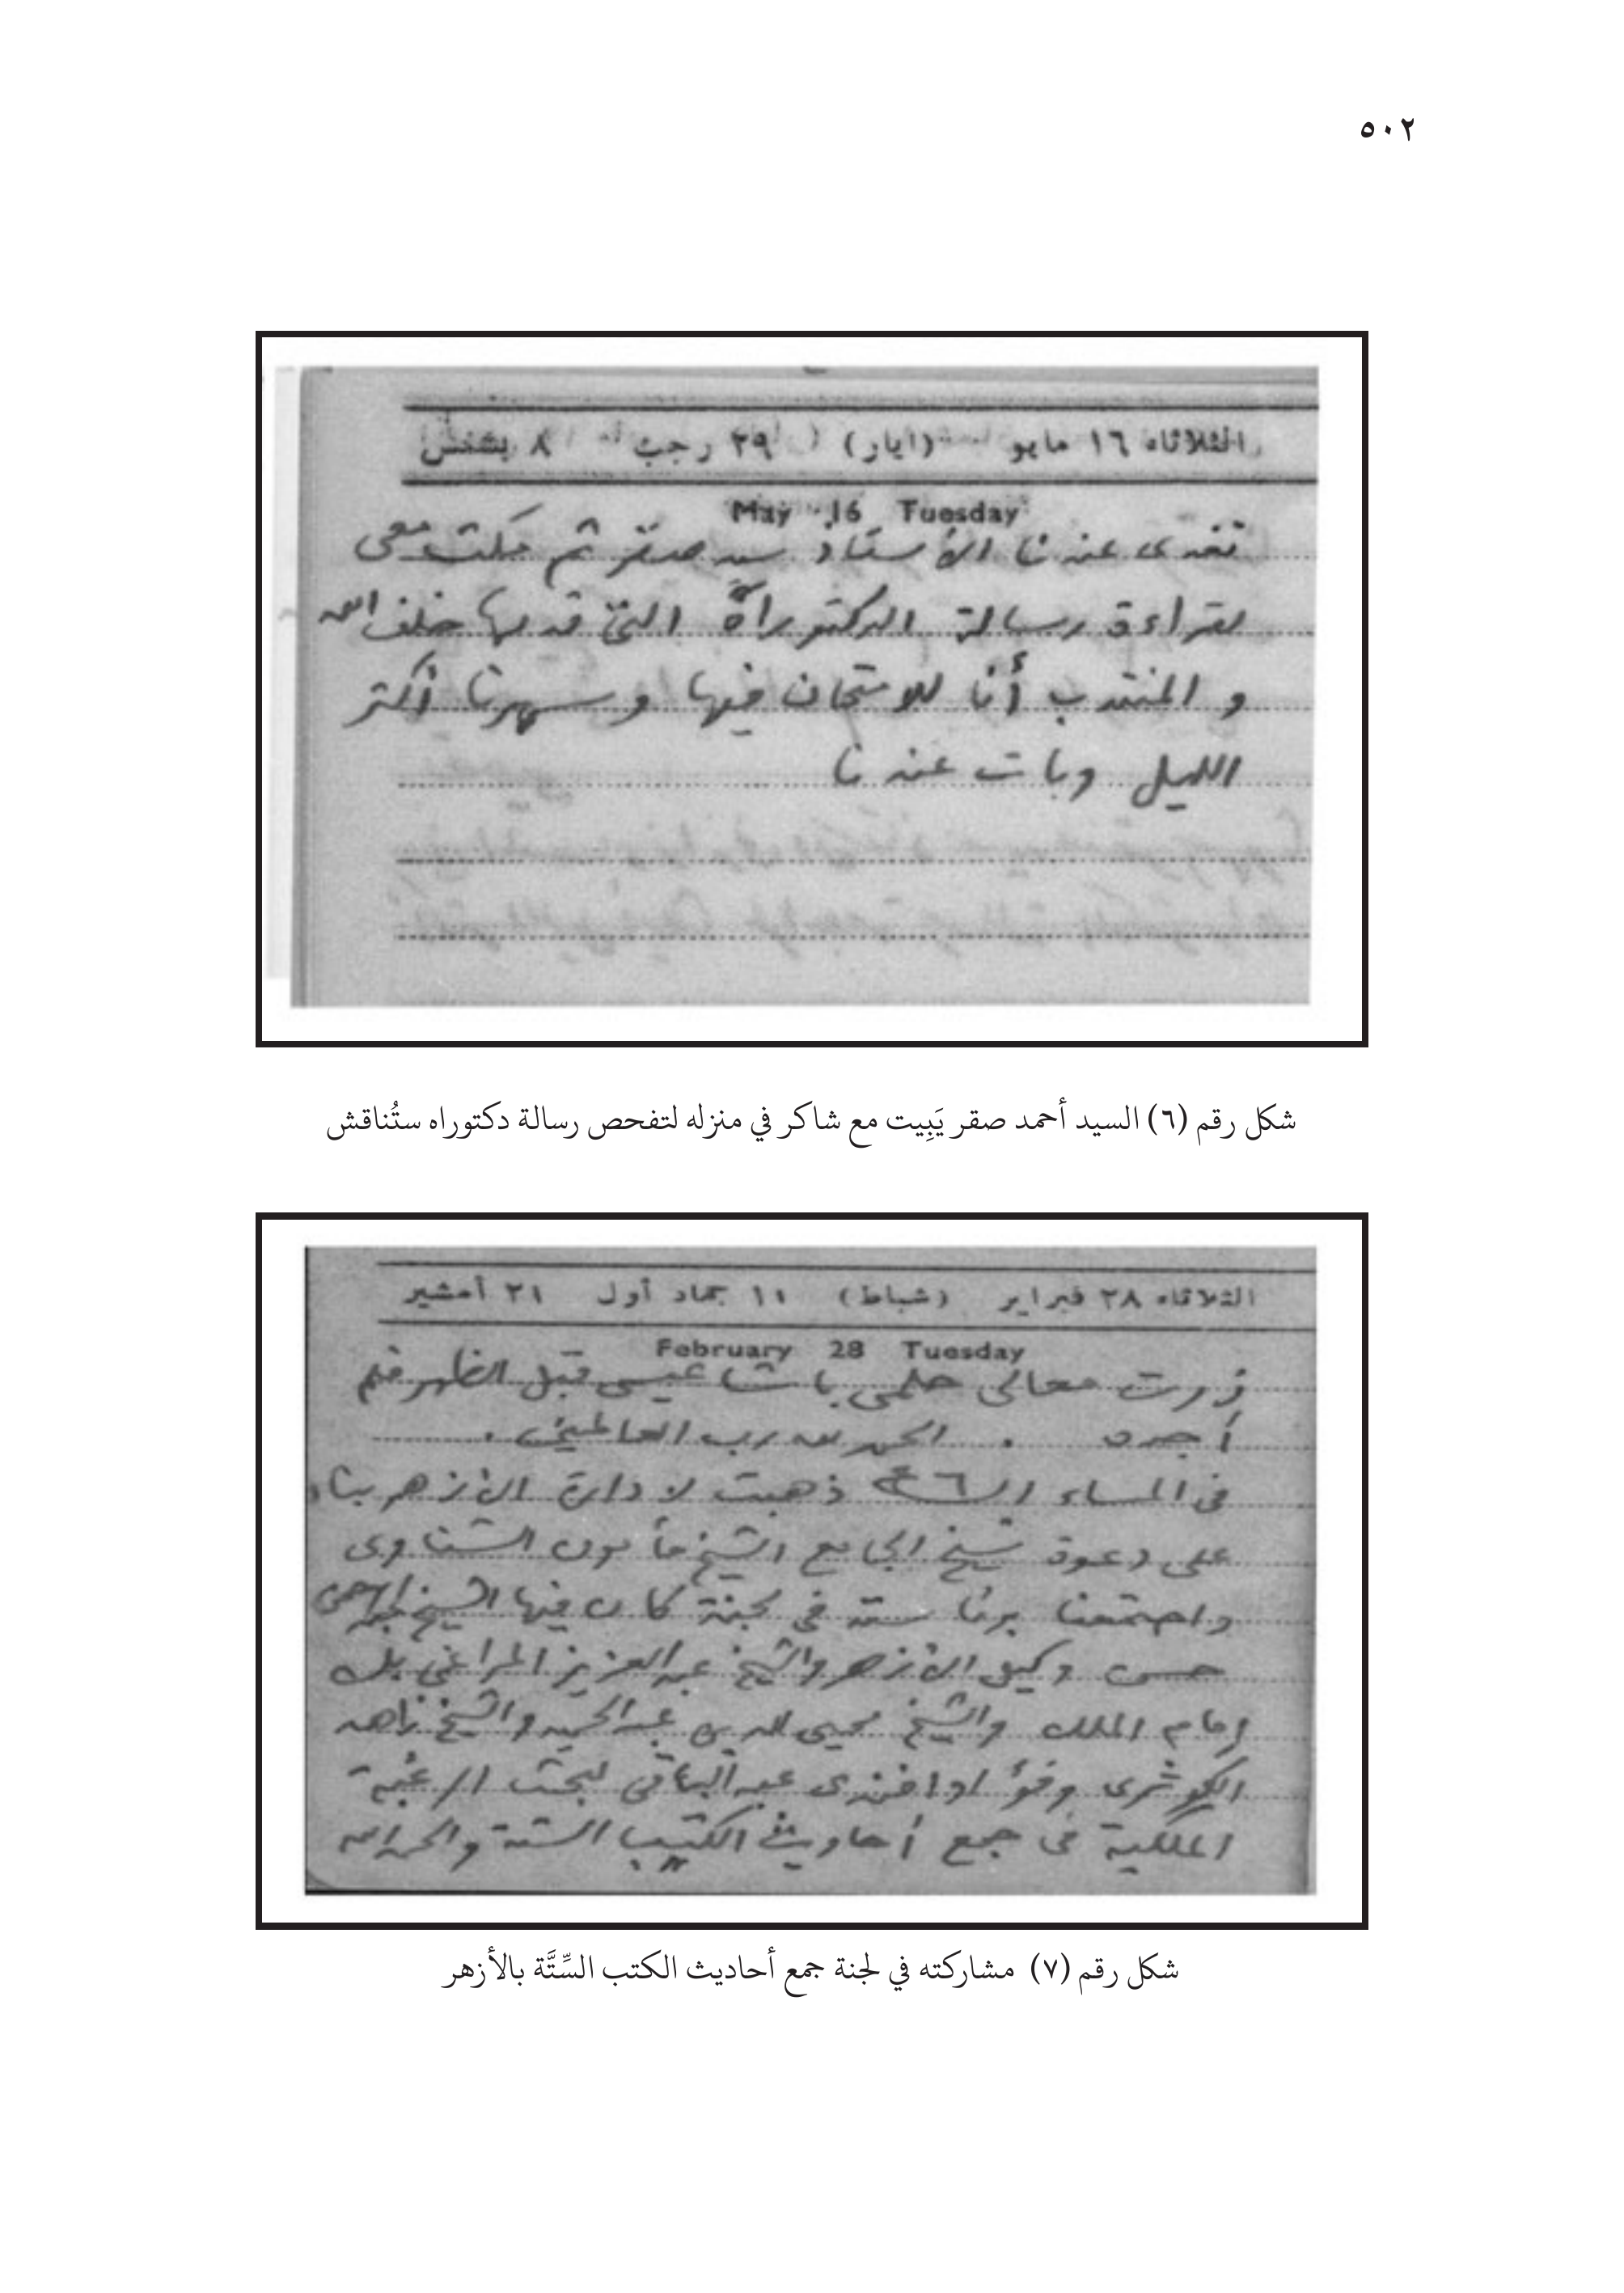 ٥٠٢
الثلاثاء ١٦ مايو (ايار) ٢٩ رجب ٨ بشنس
May 16 Tuesday
تغدى عندنا الأستاذ سيد صقر ثم مكث معى
لقراءة رسالة الدكتوراة التى قدمها خلف الله
و المنتدب أنا للامتحان فيها وسهرنا أكثر
الليل وبات عندنا
شكل رقم (٦) السيد أحمد صقر يَبِيت مع شاكر في منزله لتفحص رسالة دكتوراه ستُناقش
الثلاثاء ٢٨ فبراير (شباط) ١١ جماد أول ٢١ أمشير
February 28 Tuesday
زرت معالى حلمى باشا عيسى قبل الظهر فلم
أجده . الحمد لله رب العالمين .
فى المساء ذهبت لادارة الأزهر بناء
على دعوة شيخ الجامع الشيخ مأمون الشناوى
واجتمعنا برئاسته فى لجنة كان فيها الشيخ عبد الرحمن
حسن وكيل الأزهر والشيخ عبد العزيز المراغى بك
إمام الملك والشيخ محيى الدين عبد الحميد والشيخ زاهد
الكوثرى وفؤاد افندى عبد الباقى لبحث الرغبة
الملكية فى جمع أحاديث الكتب الستة والحمد لله
شكل رقم (٧) مشاركته في لجنة جمع أحاديث الكتب السِّتَّة بالأزهر